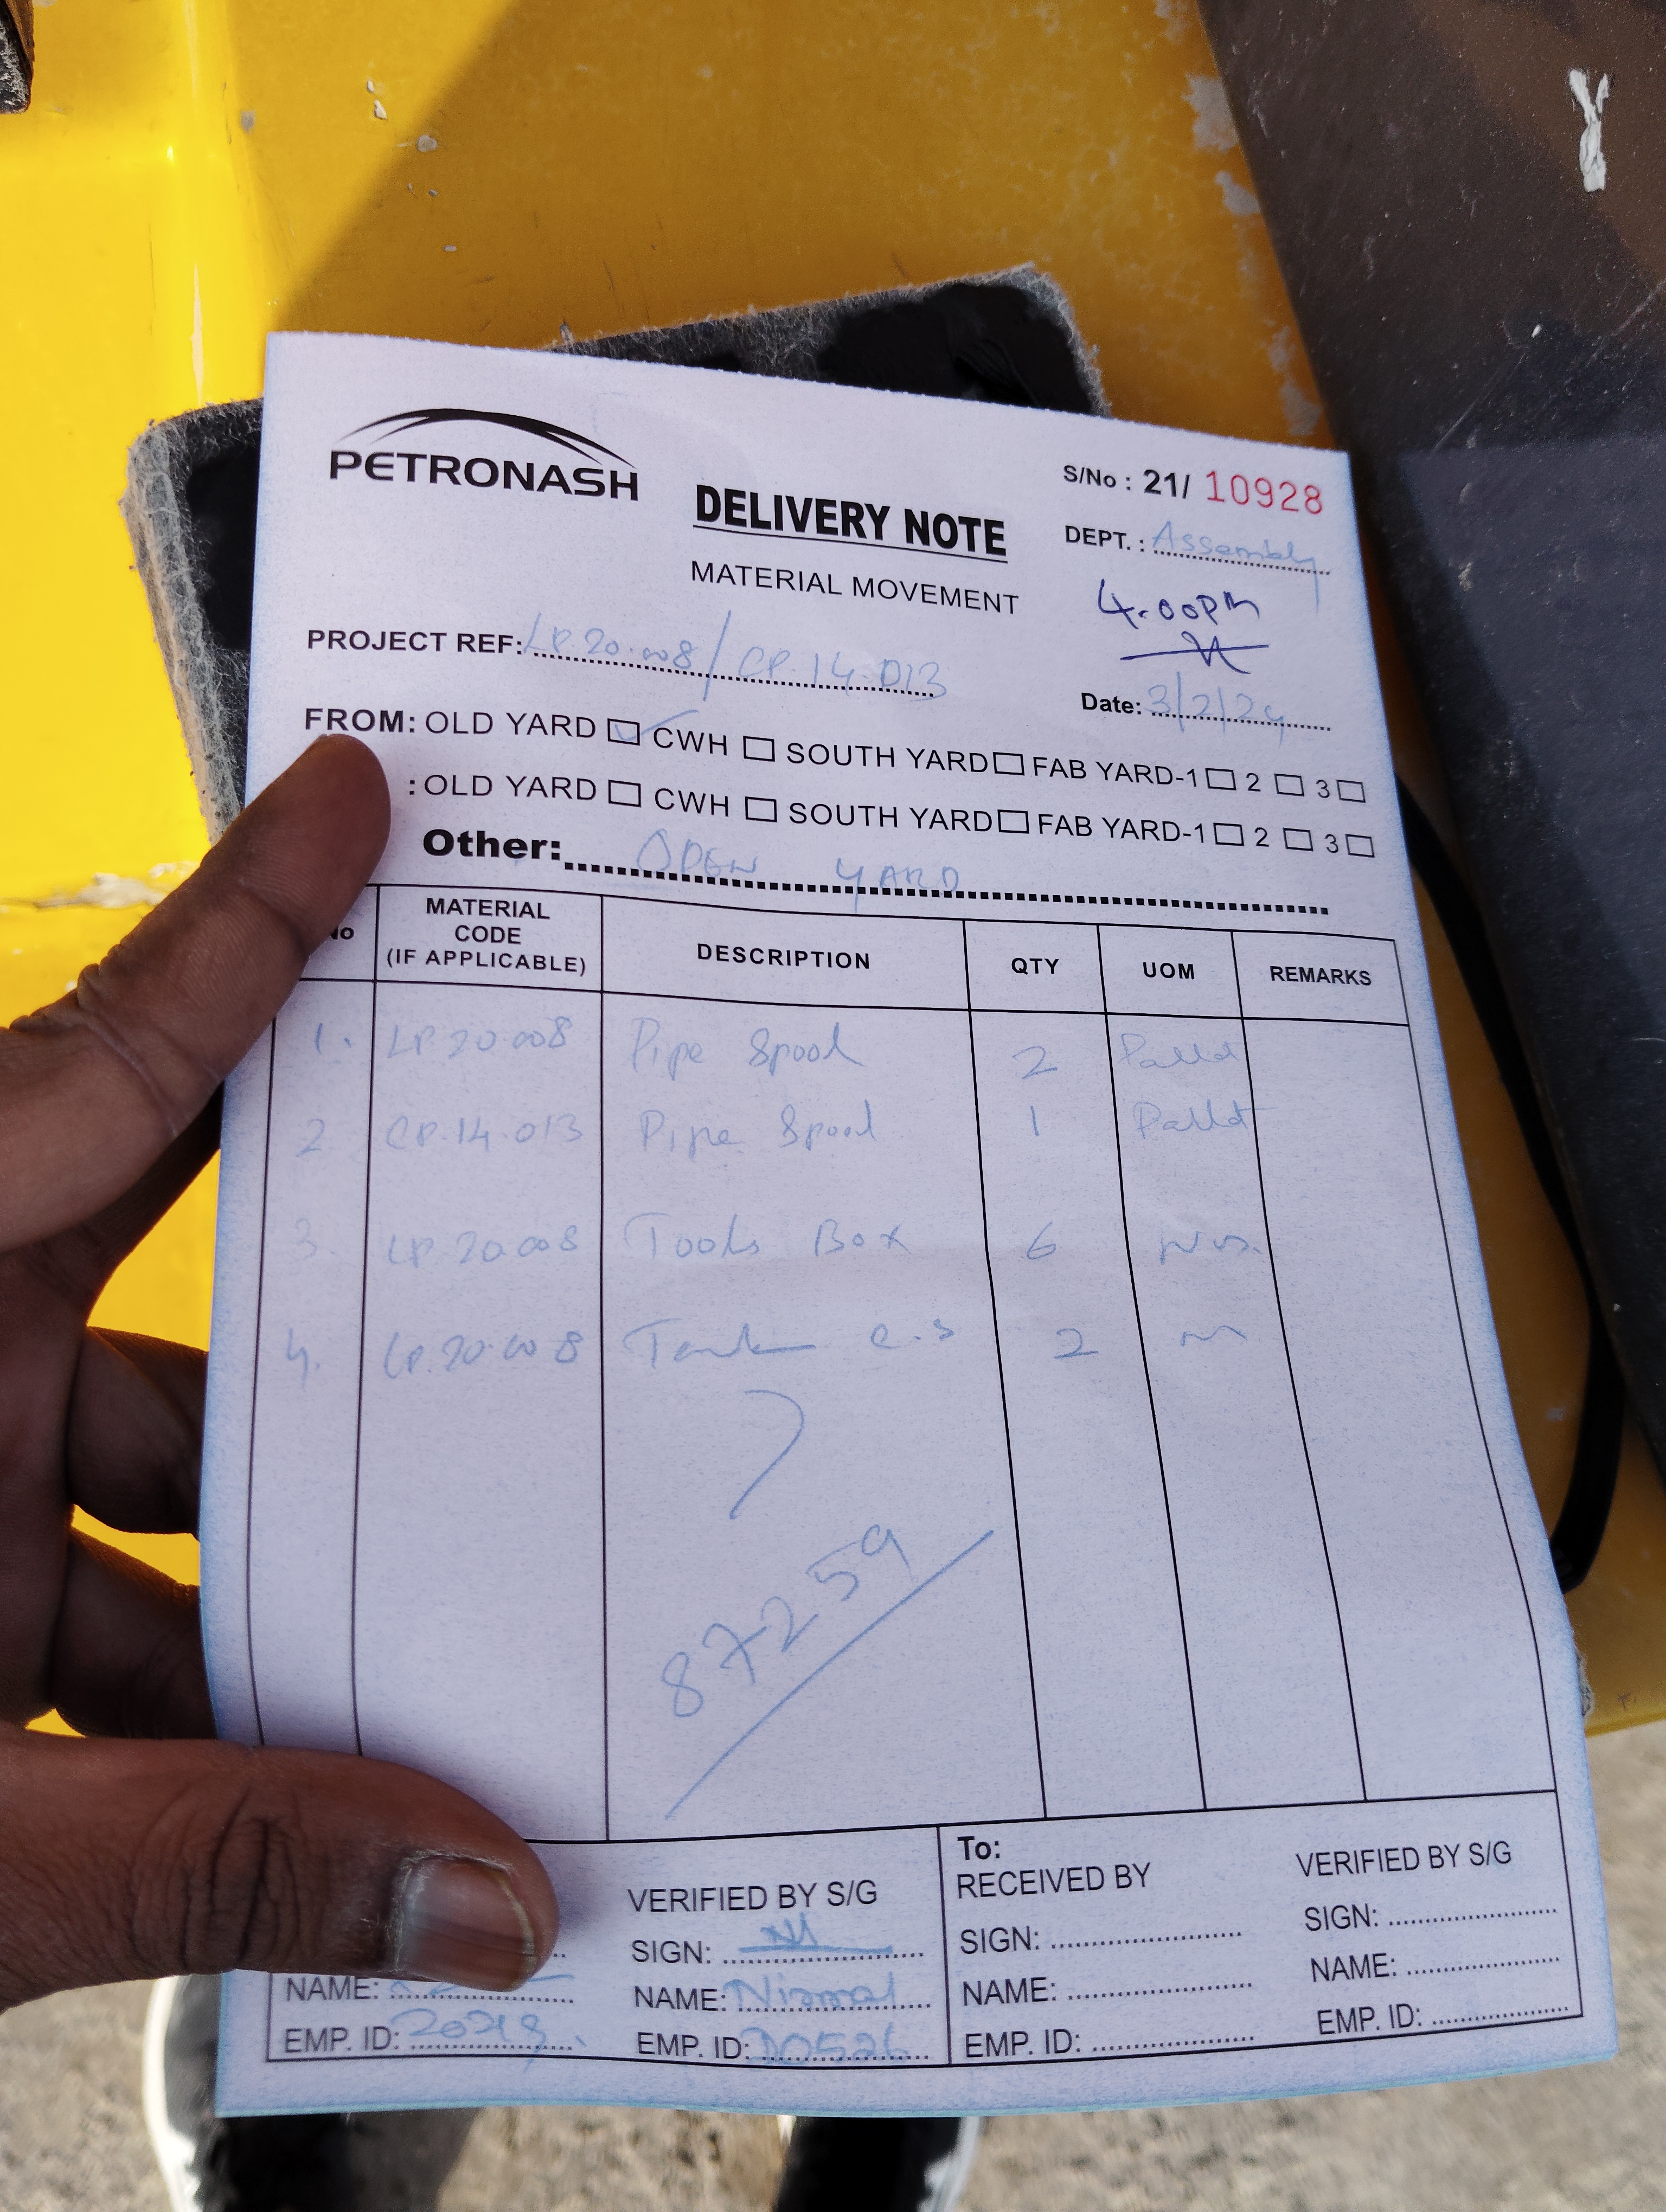 PETRONASH
DELIVERY NOTE
MATERIAL MOVEMENT
S/No : 21/ 10928
DEPT. : Assembly
4.00PM
PROJECT REF: LP.20.008/CP.14.013
Date: 3/2/24
FROM: OLD YARD CWH SOUTH YARD FAB YARD-1 2 3
: OLD YARD CWH SOUTH YARD FAB YARD-1 2 3
Other: OPEN YARD
No MATERIAL CODE (IF APPLICABLE) DESCRIPTION QTY UOM REMARKS
1. LP.20.008 Pipe Spool 2 Pallet
2 CP.14.013 Pipe Spool 1 Pallet
3. LP.20.008 Tools Box 6 Nos.
4. LP.20.008 Tank C.S 2
87259
VERIFIED BY S/G
SIGN:
NAME:
NAME: Nirmal
EMP. ID:
EMP. ID: 20526
To:
RECEIVED BY
SIGN:
NAME:
EMP. ID:
VERIFIED BY S/G
SIGN:
NAME:
EMP. ID: